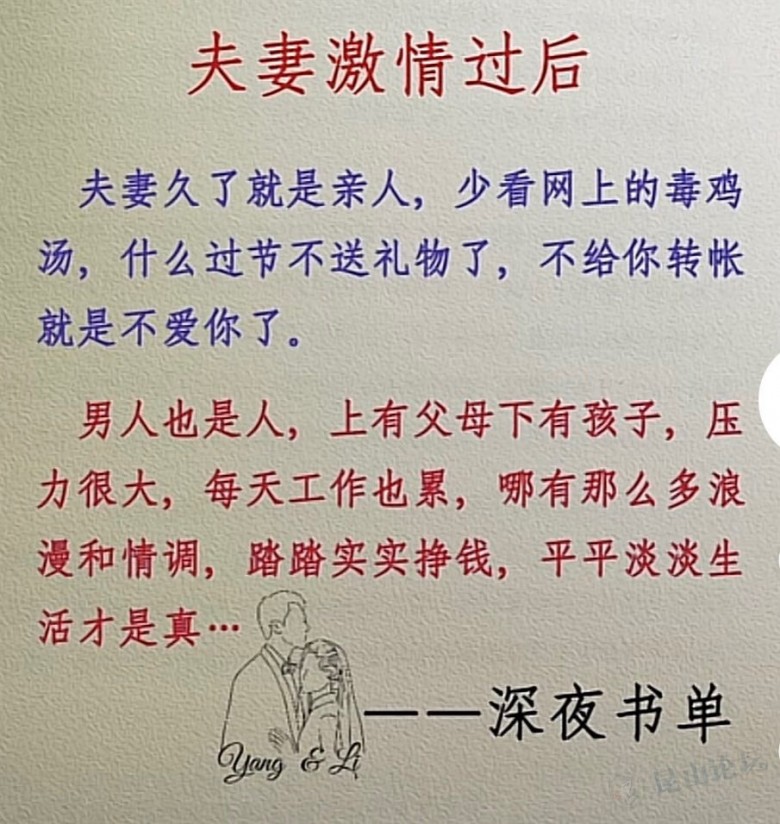 夫妻激情过后
夫妻久了就是亲人，少看网上的毒鸡
汤，什么过节不送礼物了，不给你转帐
就是不爱你了。
男人也是人，上有父母下有孩子，压
力很大，每天工作也累，哪有那么多浪
漫和情调，踏踏实实挣钱，平平淡淡生
活才是真…
——深夜书单
Yang & Li
昆山论坛